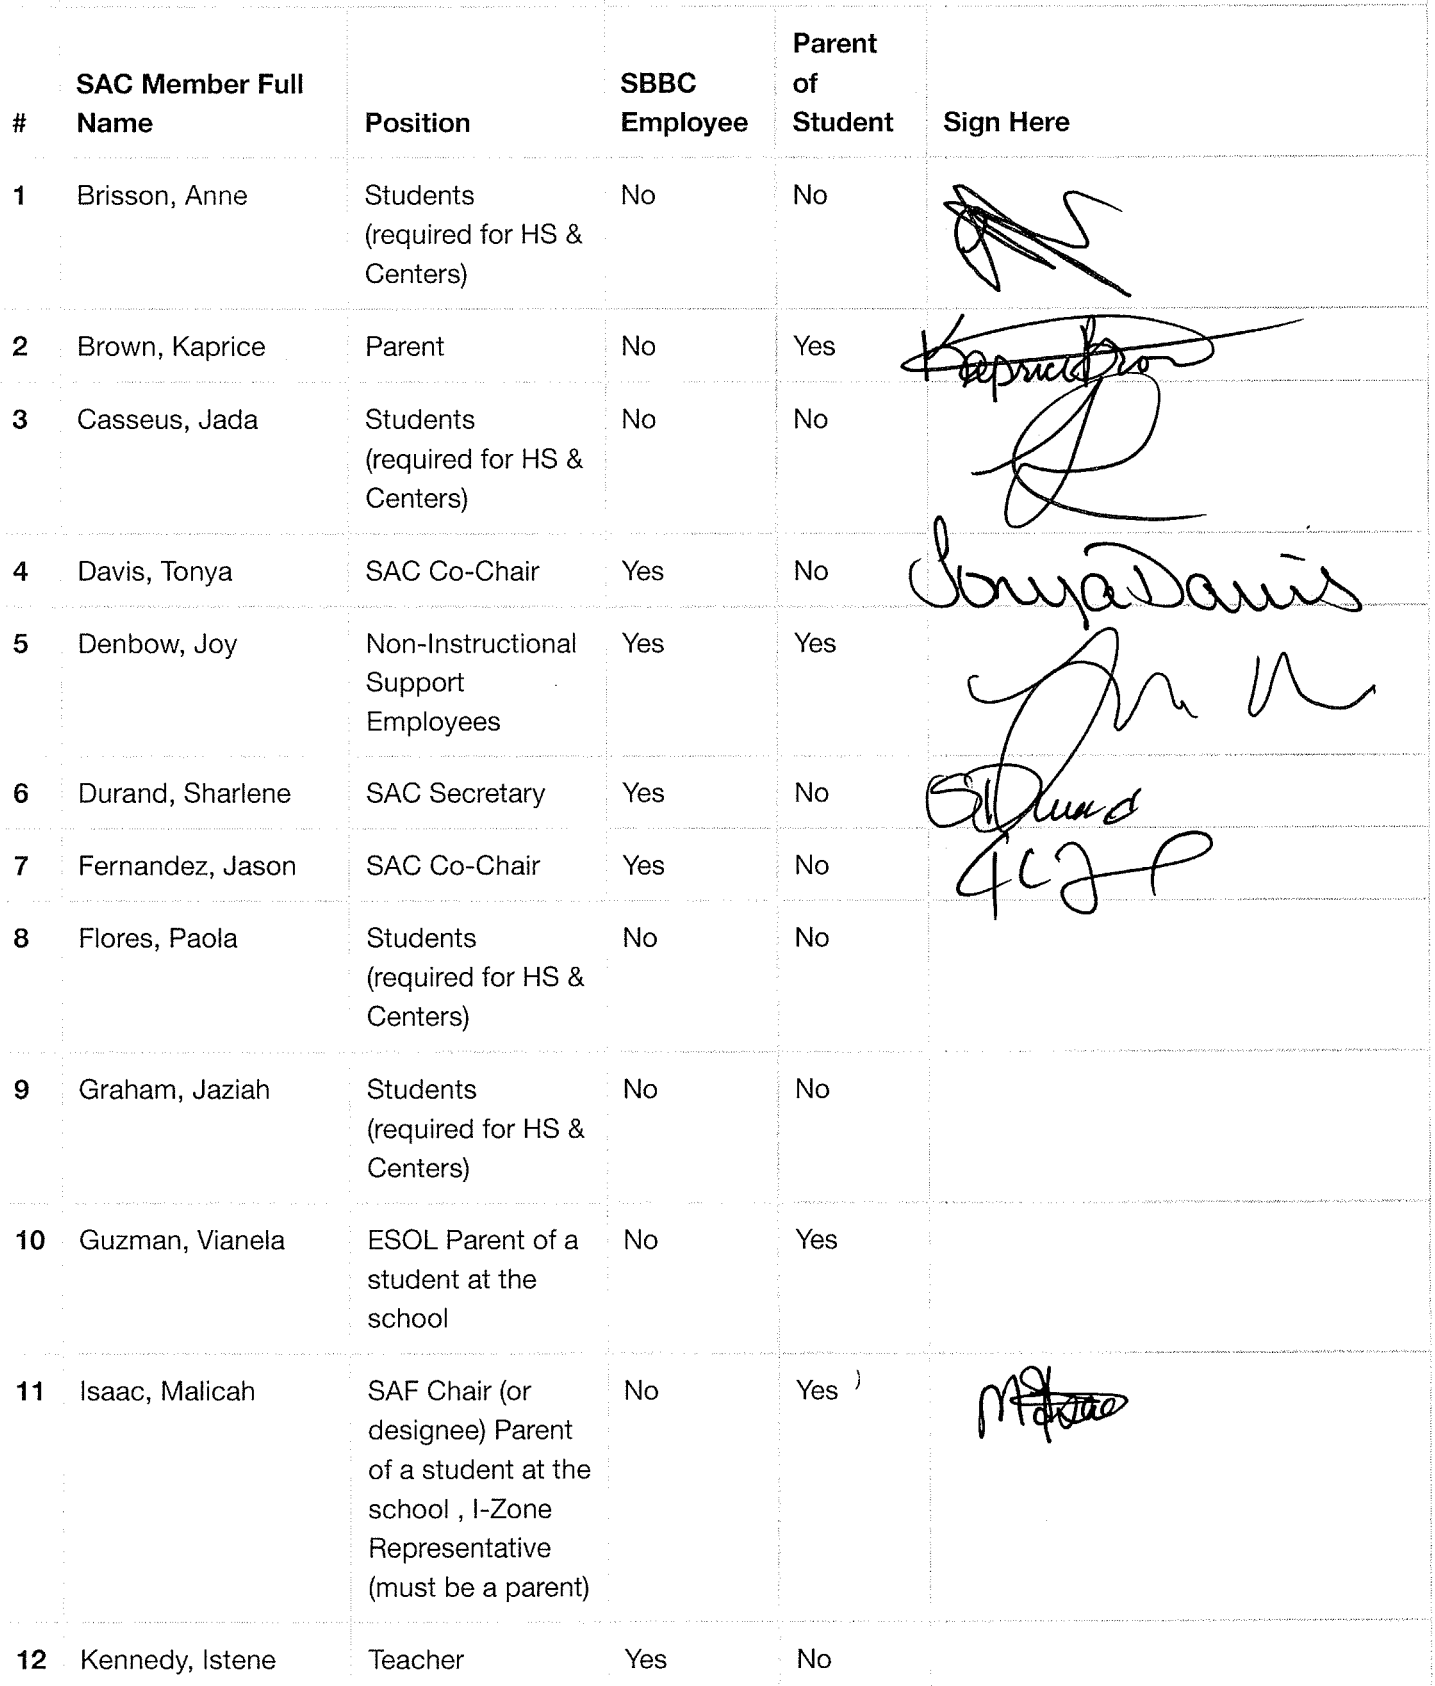 # SAC Member Full Name Position SBBC Employee Parent of Student Sign Here
1 Brisson, Anne Students No No
(required for HS &
Centers)
2 Brown, Kaprice Parent No Yes Kaprice Brown
3 Casseus, Jada Students No No
(required for HS &
Centers)
4 Davis, Tonya SAC Co-Chair Yes No Tonya Davis
5 Denbow, Joy Non-Instructional Yes Yes
Support
Employees
6 Durand, Sharlene SAC Secretary Yes No SDurand
7 Fernandez, Jason SAC Co-Chair Yes No
8 Flores, Paola Students No No
(required for HS &
Centers)
9 Graham, Jaziah Students No No
(required for HS &
Centers)
10 Guzman, Vianela ESOL Parent of a No Yes
student at the
school
11 Isaac, Malicah SAF Chair (or No Yes
designee) Parent
of a student at the
school , I-Zone
Representative
(must be a parent)
12 Kennedy, Istene Teacher Yes No